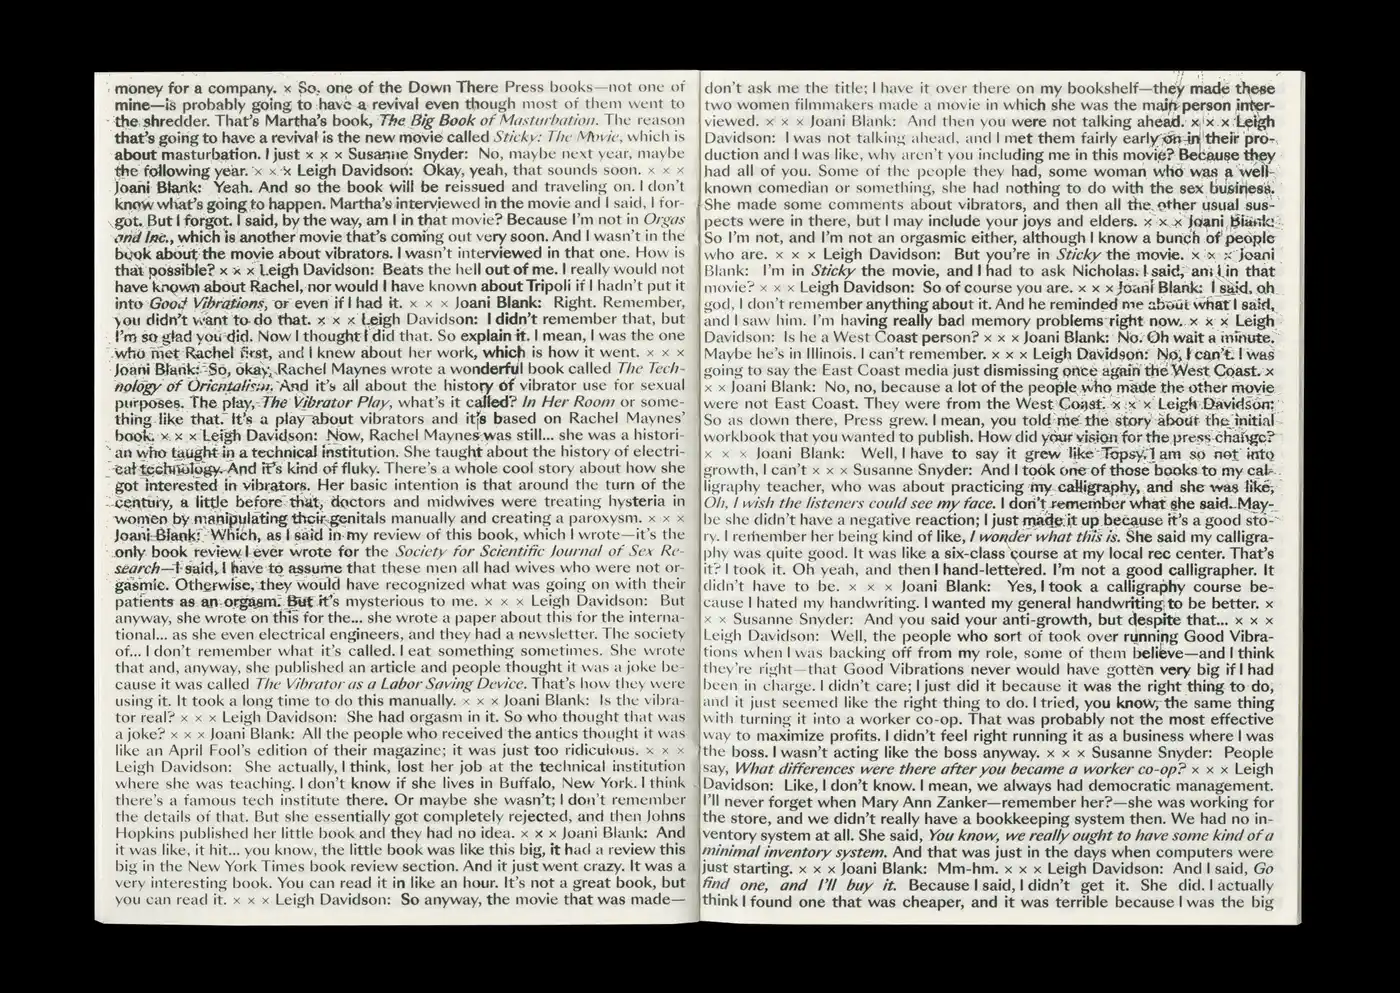 money for a company. × So, one of the Down There Press books—not one of
mine—is probably going to have a revival even though most of them went to
the shredder. That's Martha's book, The Big Book of Masturbation. The reason
that's going to have a revival is the new movie called Sticky: The Movie, which is
about masturbation. I just × × × Susanne Snyder: No, maybe next year, maybe
the following year. × × × Leigh Davidson: Okay, yeah, that sounds soon. × × ×
Joani Blank: Yeah. And so the book will be reissued and traveling on. I don't
know what's going to happen. Martha's interviewed in the movie and I said, I for-
got. But I forgot. I said, by the way, am I in that movie? Because I'm not in Orgas
and Inc., which is another movie that's coming out very soon. And I wasn't in the
book about the movie about vibrators. I wasn't interviewed in that one. How is
that possible? × × × Leigh Davidson: Beats the hell out of me. I really would not
have known about Rachel, nor would I have known about Tripoli if I hadn't put it
into Good Vibrations, or even if I had it. × × × Joani Blank: Right. Remember,
you didn't want to do that. × × × Leigh Davidson: I didn't remember that, but
I'm so glad you did. Now I thought I did that. So explain it. I mean, I was the one
who met Rachel first, and I knew about her work, which is how it went. × × ×
Joani Blank: So, okay, Rachel Maynes wrote a wonderful book called The Tech-
nology of Orientalism. And it's all about the history of vibrator use for sexual
purposes. The play, The Vibrator Play, what's it called? In Her Room or some-
thing like that. It's a play about vibrators and it's based on Rachel Maynes'
book. × × × Leigh Davidson: Now, Rachel Maynes was still... she was a histori-
an who taught in a technical institution. She taught about the history of electri-
cal technology. And it's kind of fluky. There's a whole cool story about how she
got interested in vibrators. Her basic intention is that around the turn of the
century, a little before that, doctors and midwives were treating hysteria in
women by manipulating their genitals manually and creating a paroxysm. × × ×
Joani Blank: Which, as I said in my review of this book, which I wrote—it's the
only book review I ever wrote for the Society for Scientific Journal of Sex Re-
search—I said, I have to assume that these men all had wives who were not or-
gasmic. Otherwise, they would have recognized what was going on with their
patients as an orgasm. But it's mysterious to me. × × × Leigh Davidson: But
anyway, she wrote on this for the... she wrote a paper about this for the interna-
tional... as she even electrical engineers, and they had a newsletter. The society
of... I don't remember what it's called. I eat something sometimes. She wrote
that and, anyway, she published an article and people thought it was a joke be-
cause it was called The Vibrator as a Labor Saving Device. That's how they were
using it. It took a long time to do this manually. × × × Joani Blank: Is the vibra-
tor real? × × × Leigh Davidson: She had orgasm in it. So who thought that was
a joke? × × × Joani Blank: All the people who received the antics thought it was
like an April Fool's edition of their magazine; it was just too ridiculous. × × ×
Leigh Davidson: She actually, I think, lost her job at the technical institution
where she was teaching. I don't know if she lives in Buffalo, New York. I think
there's a famous tech institute there. Or maybe she wasn't; I don't remember
the details of that. But she essentially got completely rejected, and then Johns
Hopkins published her little book and they had no idea. × × × Joani Blank: And
it was like, it hit... you know, the little book was like this big, it had a review this
big in the New York Times book review section. And it just went crazy. It was a
very interesting book. You can read it in like an hour. It's not a great book, but
you can read it. × × × Leigh Davidson: So anyway, the movie that was made—
don't ask me the title; I have it over there on my bookshelf—they made these
two women filmmakers made a movie in which she was the main person inter-
viewed. × × × Joani Blank: And then you were not talking ahead. × × × Leigh
Davidson: I was not talking ahead, and I met them fairly early on in their pro-
duction and I was like, why aren't you including me in this movie? Because they
had all of you. Some of the people they had, some woman who was a well-
known comedian or something, she had nothing to do with the sex business.
She made some comments about vibrators, and then all the other usual sus-
pects were in there, but I may include your joys and elders. × × × Joani Blank:
So I'm not, and I'm not an orgasmic either, although I know a bunch of people
who are. × × × Leigh Davidson: But you're in Sticky the movie. × × × Joani
Blank: I'm in Sticky the movie, and I had to ask Nicholas. I said, am I in that
movie? × × × Leigh Davidson: So of course you are. × × × Joani Blank: I said, oh
god, I don't remember anything about it. And he reminded me about what I said,
and I saw him. I'm having really bad memory problems right now. × × × Leigh
Davidson: Is he a West Coast person? × × × Joani Blank: No. Oh wait a minute.
Maybe he's in Illinois. I can't remember. × × × Leigh Davidson: No, I can't. I was
going to say the East Coast media just dismissing once again the West Coast. ×
× × Joani Blank: No, no, because a lot of the people who made the other movie
were not East Coast. They were from the West Coast. × × × Leigh Davidson:
So as down there, Press grew. I mean, you told me the story about the initial
workbook that you wanted to publish. How did your vision for the press change?
× × × Joani Blank: Well, I have to say it grew like Topsy. I am so not into
growth, I can't × × × Susanne Snyder: And I took one of those books to my cal-
ligraphy teacher, who was about practicing my calligraphy, and she was like,
Oh, I wish the listeners could see my face. I don't remember what she said. May-
be she didn't have a negative reaction; I just made it up because it's a good sto-
ry. I remember her being kind of like, I wonder what this is. She said my calligra-
phy was quite good. It was like a six-class course at my local rec center. That's
it? I took it. Oh yeah, and then I hand-lettered. I'm not a good calligrapher. It
didn't have to be. × × × Joani Blank: Yes, I took a calligraphy course be-
cause I hated my handwriting. I wanted my general handwriting to be better. ×
× × Susanne Snyder: And you said your anti-growth, but despite that... × × ×
Leigh Davidson: Well, the people who sort of took over running Good Vibra-
tions when I was backing off from my role, some of them believe—and I think
they're right—that Good Vibrations never would have gotten very big if I had
been in charge. I didn't care; I just did it because it was the right thing to do,
and it just seemed like the right thing to do. I tried, you know, the same thing
with turning it into a worker co-op. That was probably not the most effective
way to maximize profits. I didn't feel right running it as a business where I was
the boss. I wasn't acting like the boss anyway. × × × Susanne Snyder: People
say, What differences were there after you became a worker co-op? × × × Leigh
Davidson: Like, I don't know. I mean, we always had democratic management.
I'll never forget when Mary Ann Zanker—remember her?—she was working for
the store, and we didn't really have a bookkeeping system then. We had no in-
ventory system at all. She said, You know, we really ought to have some kind of a
minimal inventory system. And that was just in the days when computers were
just starting. × × × Joani Blank: Mm-hm. × × × Leigh Davidson: And I said, Go
find one, and I'll buy it. Because I said, I didn't get it. She did. I actually
think I found one that was cheaper, and it was terrible because I was the big